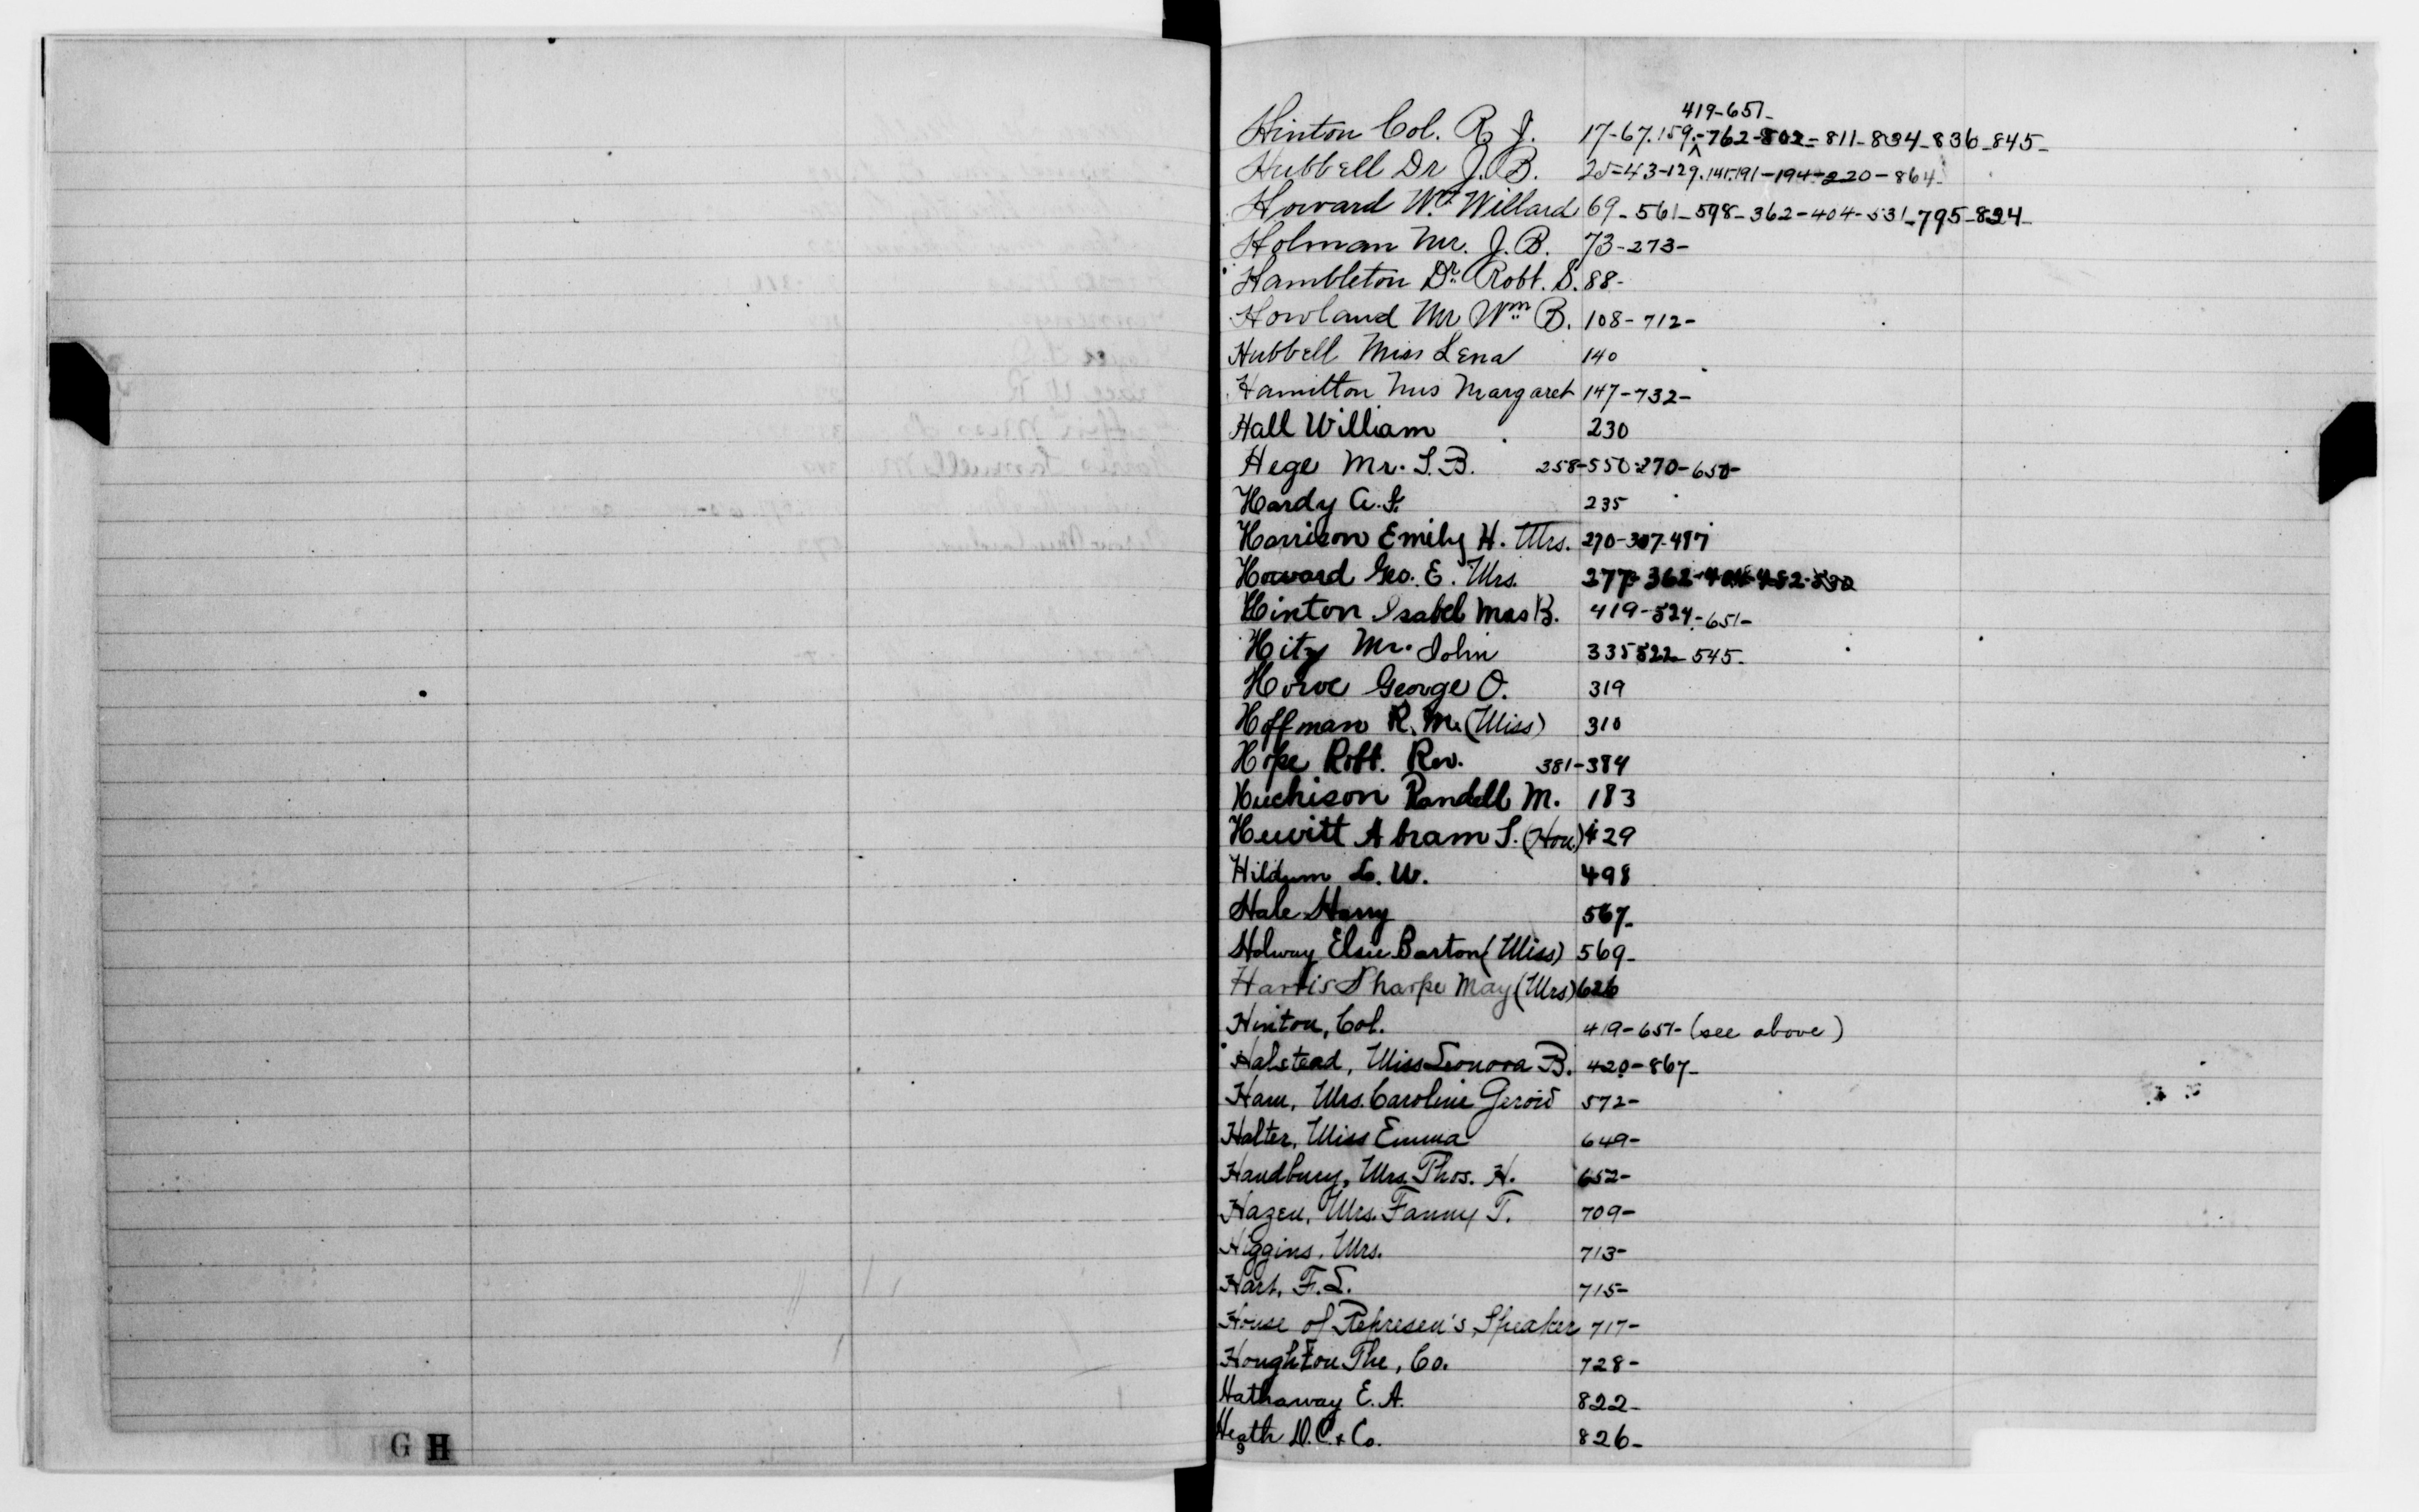 419-651-
Hinton Col. R. J. 17-67.159.-762-802-811-834-836-845-
Hubbell Dr J. B. 25-43-129.141.191-194-220-864-
Howard Wm. Willard 69-561-598-362-404-531-795-824-
Holman Mr. J. B. 73-273-
Hambleton Dr. Robt. S. 88-
Howland Mr Wm B. 108-712-
Hubbell Miss Lena 140
Hamilton Mrs Margaret 147-732-
Hall William 230
Hege Mr. S. B. 258-550-270-650-
Hardy A. S. 235
Harrison Emily H. Mrs. 270-307-487
Howard Geo. E. Mrs. 277-362-404-482-530
Hinton Isabel Mrs B. 419-524-651-
Hitz Mr. John 335 522-545-
Howe George O. 319
Hoffman R. M. (Miss) 310
Hope Robt. Rev. 381-384
Huchison Randell M. 183
Hewitt Abram S. (Hon.) 429
Hildum L. W. 498
Hale Harry 567-
Holway Elsie Barton (Miss) 569-
Harris Sharpe May (Mrs) 626
Hinton, Col. 419-651-(see above)
Halstead, Miss Leonora B. 420-867-
Ham, Mrs. Caroline 572-
Halter, Miss Emma 649-
Handbury, Mrs. Thos. H. 652-
Hazen, Mrs. Fanny T. 709-
Higgins, Mrs. 713-
Hart, F. L. 715-
House of Represen's, Speaker 717-
Houghton The, Co. 728-
Hathaway E. A. 822-
Heath D. C. & Co. 826-
G H